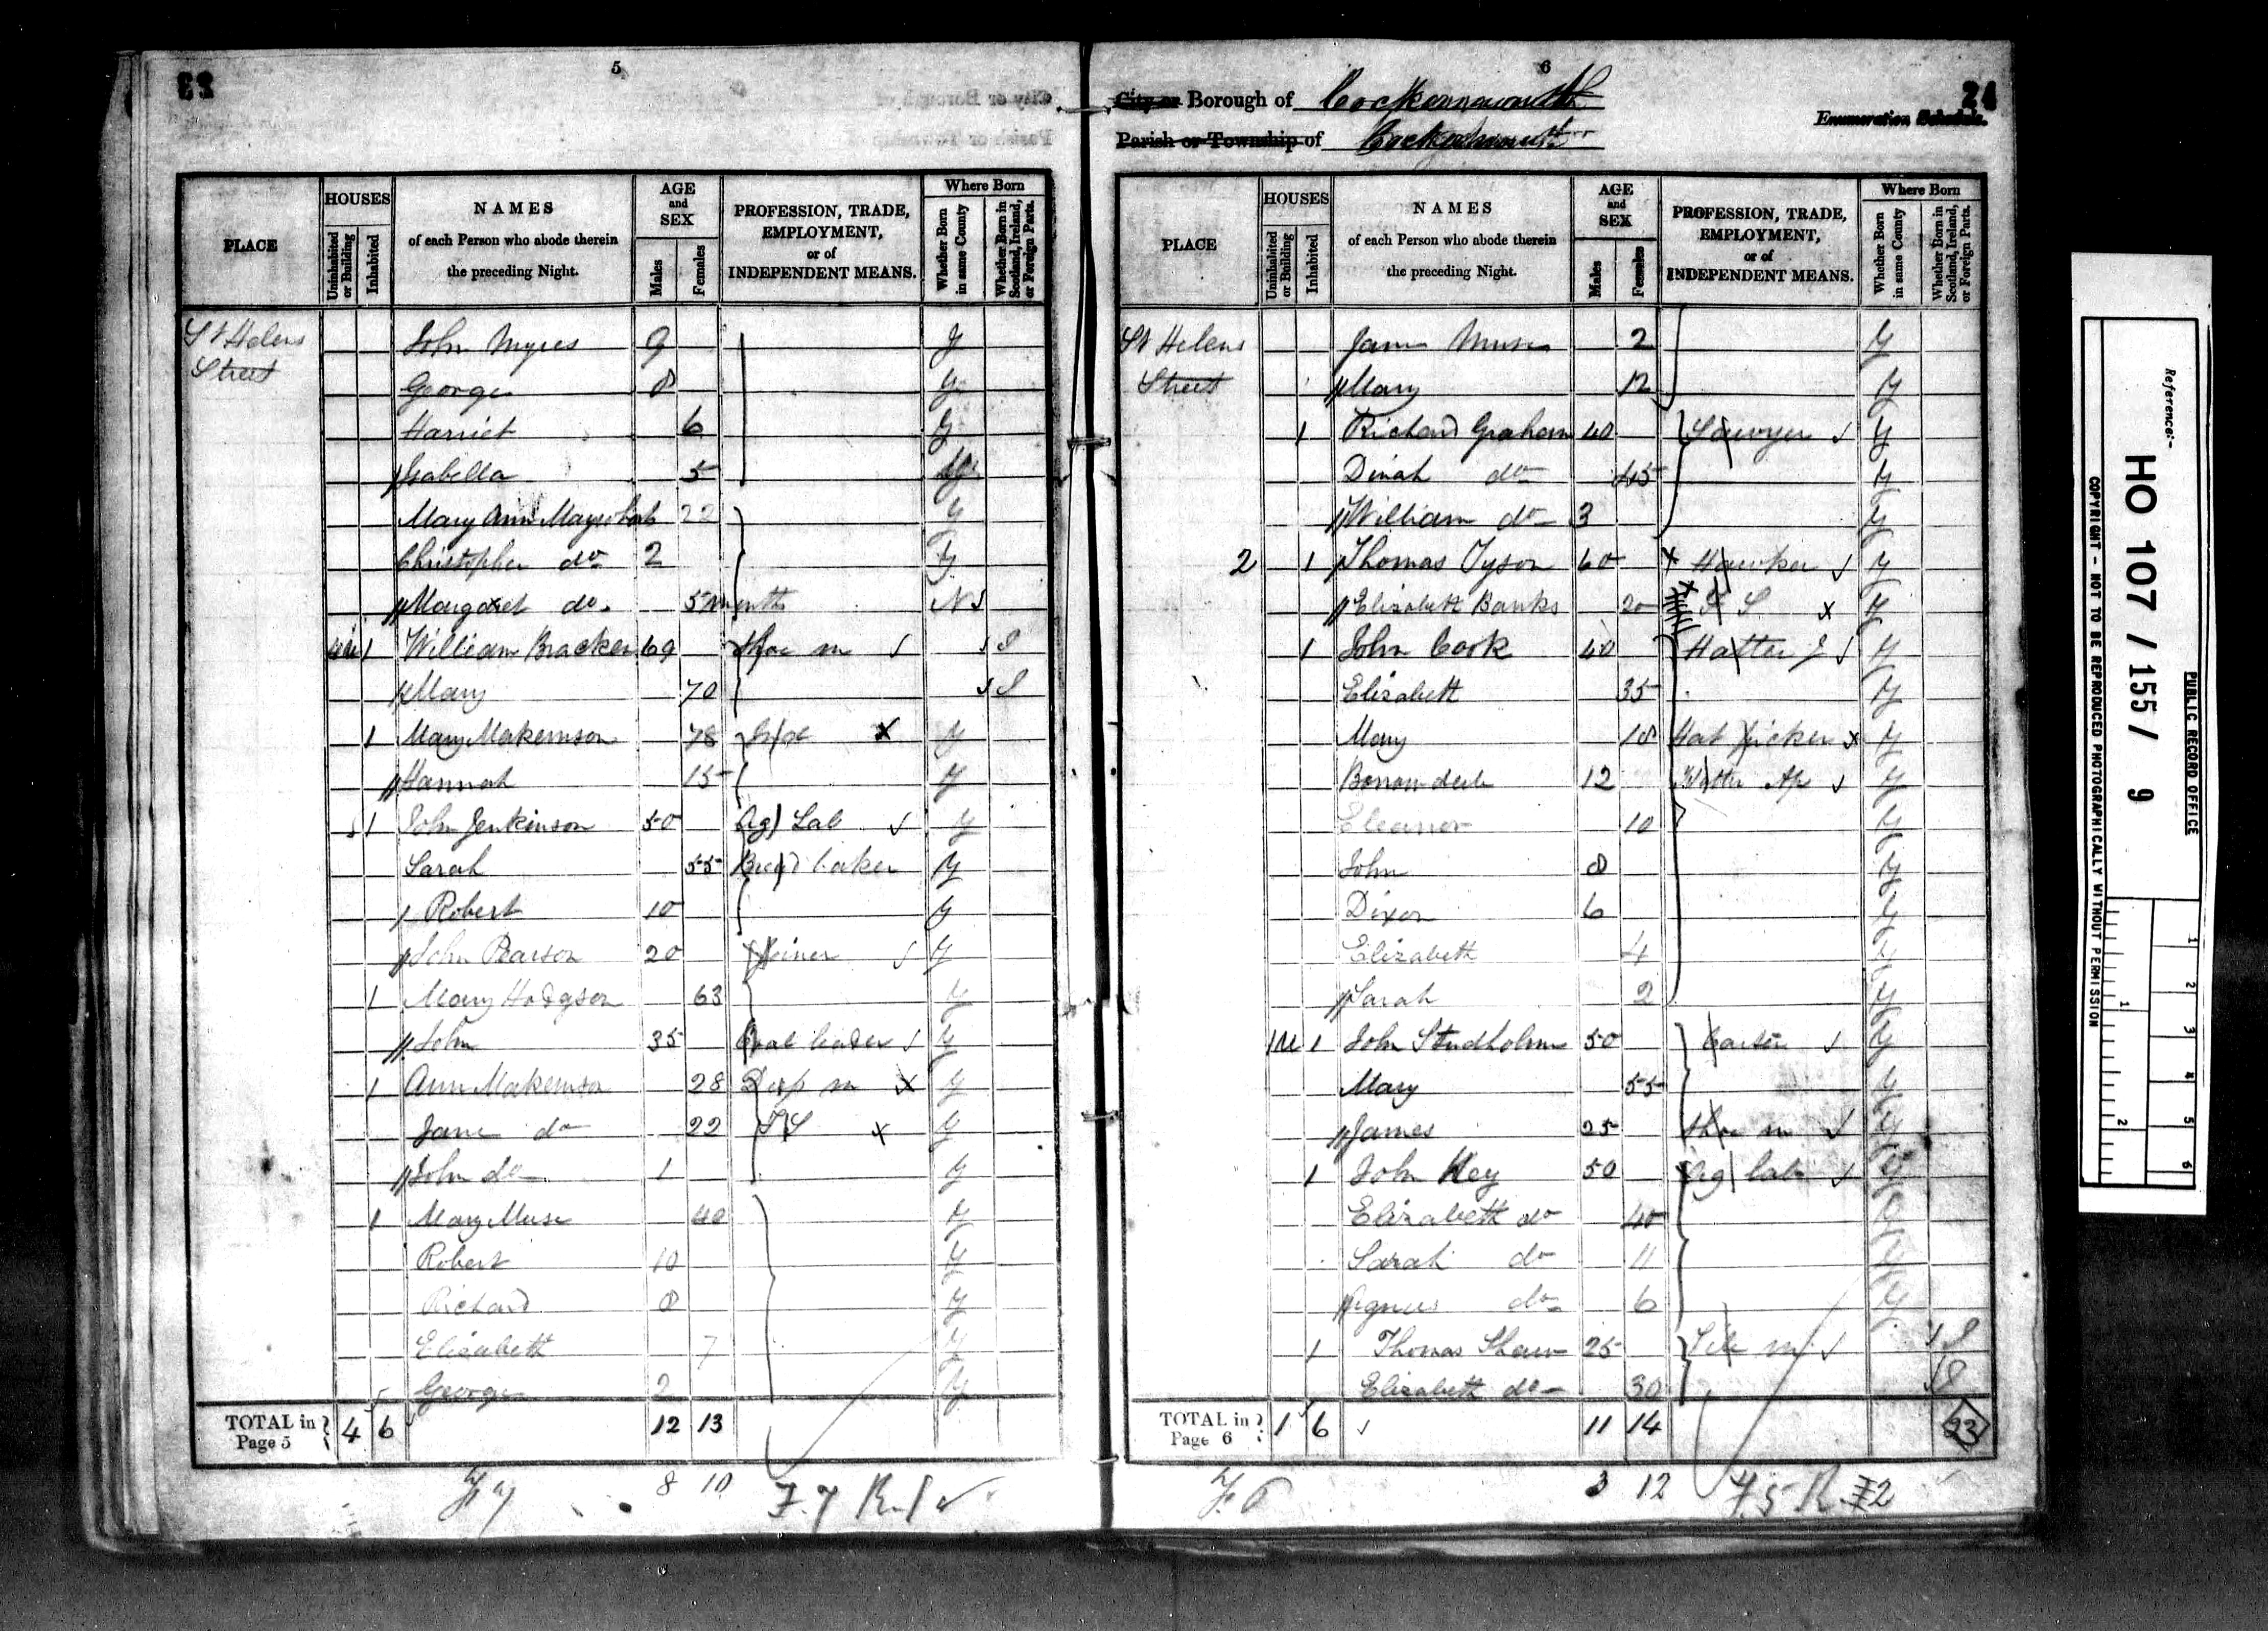 5
City or Borough of
Parish or Township of
PLACE
HOUSES
Uninhabited or Building
Inhabited
NAMES
of each Person who abode therein
the preceding Night.
AGE
and
SEX
Males
Females
PROFESSION, TRADE,
EMPLOYMENT,
or of
INDEPENDENT MEANS.
Where Born
Whether Born in same County
Whether Born in Scotland, Ireland, or Foreign Parts.
St Helens John Myres 9 y
Street
George 8 y
Harriet 6 y
Isabella 5
Mary Ann 22 y
Christopher do 2 y
Margaret do. 5 months N
1 William Bracken 69 Shoe m S
Mary 70 S
1 Mary Makemson 78 Ind y
Hannah 15 y
1 John Jenkinson 50 Ag Lab y
Sarah 55 Bread baker y
Robert 10 y
John Pearson 20 Joiner y
1 Mary Hodgson 63 y
John 35 Coal leader y
1 Ann Makemson 28 m y
Jane do 22 FS y
John do 1 y
1 Mary Muse 40 y
Robert 10 y
Richard 8 y
Elizabeth 7 y
George 2 y
TOTAL in Page 5 4 6 12 13
8 10
6
24
City or Borough of Cockermouth
Parish or Township of Cockermouth
Enumeration Schedule.
PLACE
HOUSES
Uninhabited or Building
Inhabited
NAMES
of each Person who abode therein
the preceding Night.
AGE
and
SEX
Males
Females
PROFESSION, TRADE,
EMPLOYMENT,
or of
INDEPENDENT MEANS.
Where Born
Whether Born in same County
Whether Born in Scotland, Ireland, or Foreign Parts.
St Helens Jane Muse 2 y
Street Mary 12 y
1 Richard Graham 40 Sawyer y
Dinah do 45 y
William do 3 y
2 1 Thomas Tyson 60 Hawker y
Elizabeth Banks 20 F S y
1 John Cook 40 Hatter J y
Elizabeth 35 y
Mary 18 Hat picker y
12 Hatter Ap y
Eleanor 10 y
John 8 y
Dixon 6 y
Elizabeth 4 y
Sarah 2 y
1U 1 John Studholme 50 Carter y
Mary 55 y
James 25 Shoe m y
1 John Key 50 Ag lab y
Elizabeth do 40 y
Sarah do 11 y
Agnes do 6 y
1 Thomas Shaw 25 m S
Elizabeth do 30 S
TOTAL in Page 6 1 6 11 14
23
3 12
Reference:-
HO 107 / 155 / 9
PUBLIC RECORD OFFICE
COPYRIGHT - NOT TO BE REPRODUCED PHOTOGRAPHICALLY WITHOUT PERMISSION
1
2
3
4
5
6
1
2